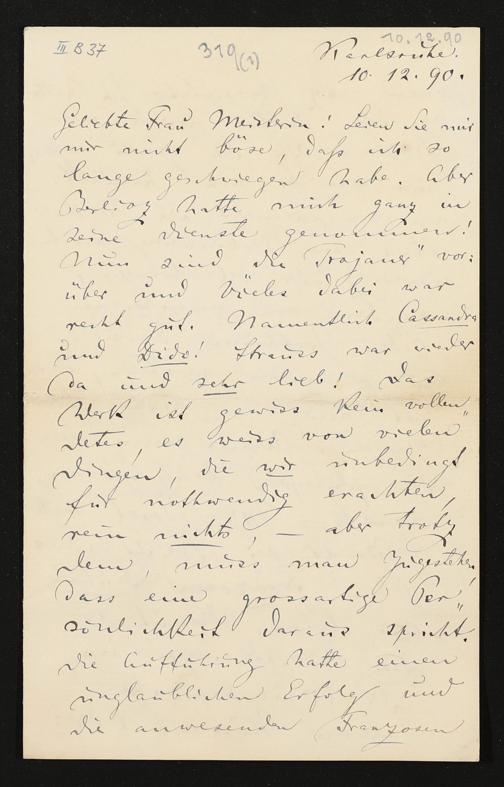 III B 37
319 (1)
10.12.90
Karlsruhe.
10. 12. 90.
Geliebte Frau Meisterin! Seien Sie mir
nur nicht böse, daß ich so
lange geschwiegen habe. Aber
Berlioz hatte mich ganz in
seine Dienste genommen!
Nun sind die „Trojaner" vor:
über und Vieles dabei war
recht gut. Namentlich Cassandra
und Dido! Strauss war wieder
da und sehr lieb! Das
Werk ist gewiss kein vollen„
detes, es weiss von vielen
Dingen, die wir unbedingt
für nothwendig erachten,
rein nichts, – aber trotz
dem, muss man zugestehen,
dass eine grossartige Per„
sönlichkeit daraus spricht.
Die Aufführung hatte einen
unglaublichen Erfolg und
die anwesenden Franzosen